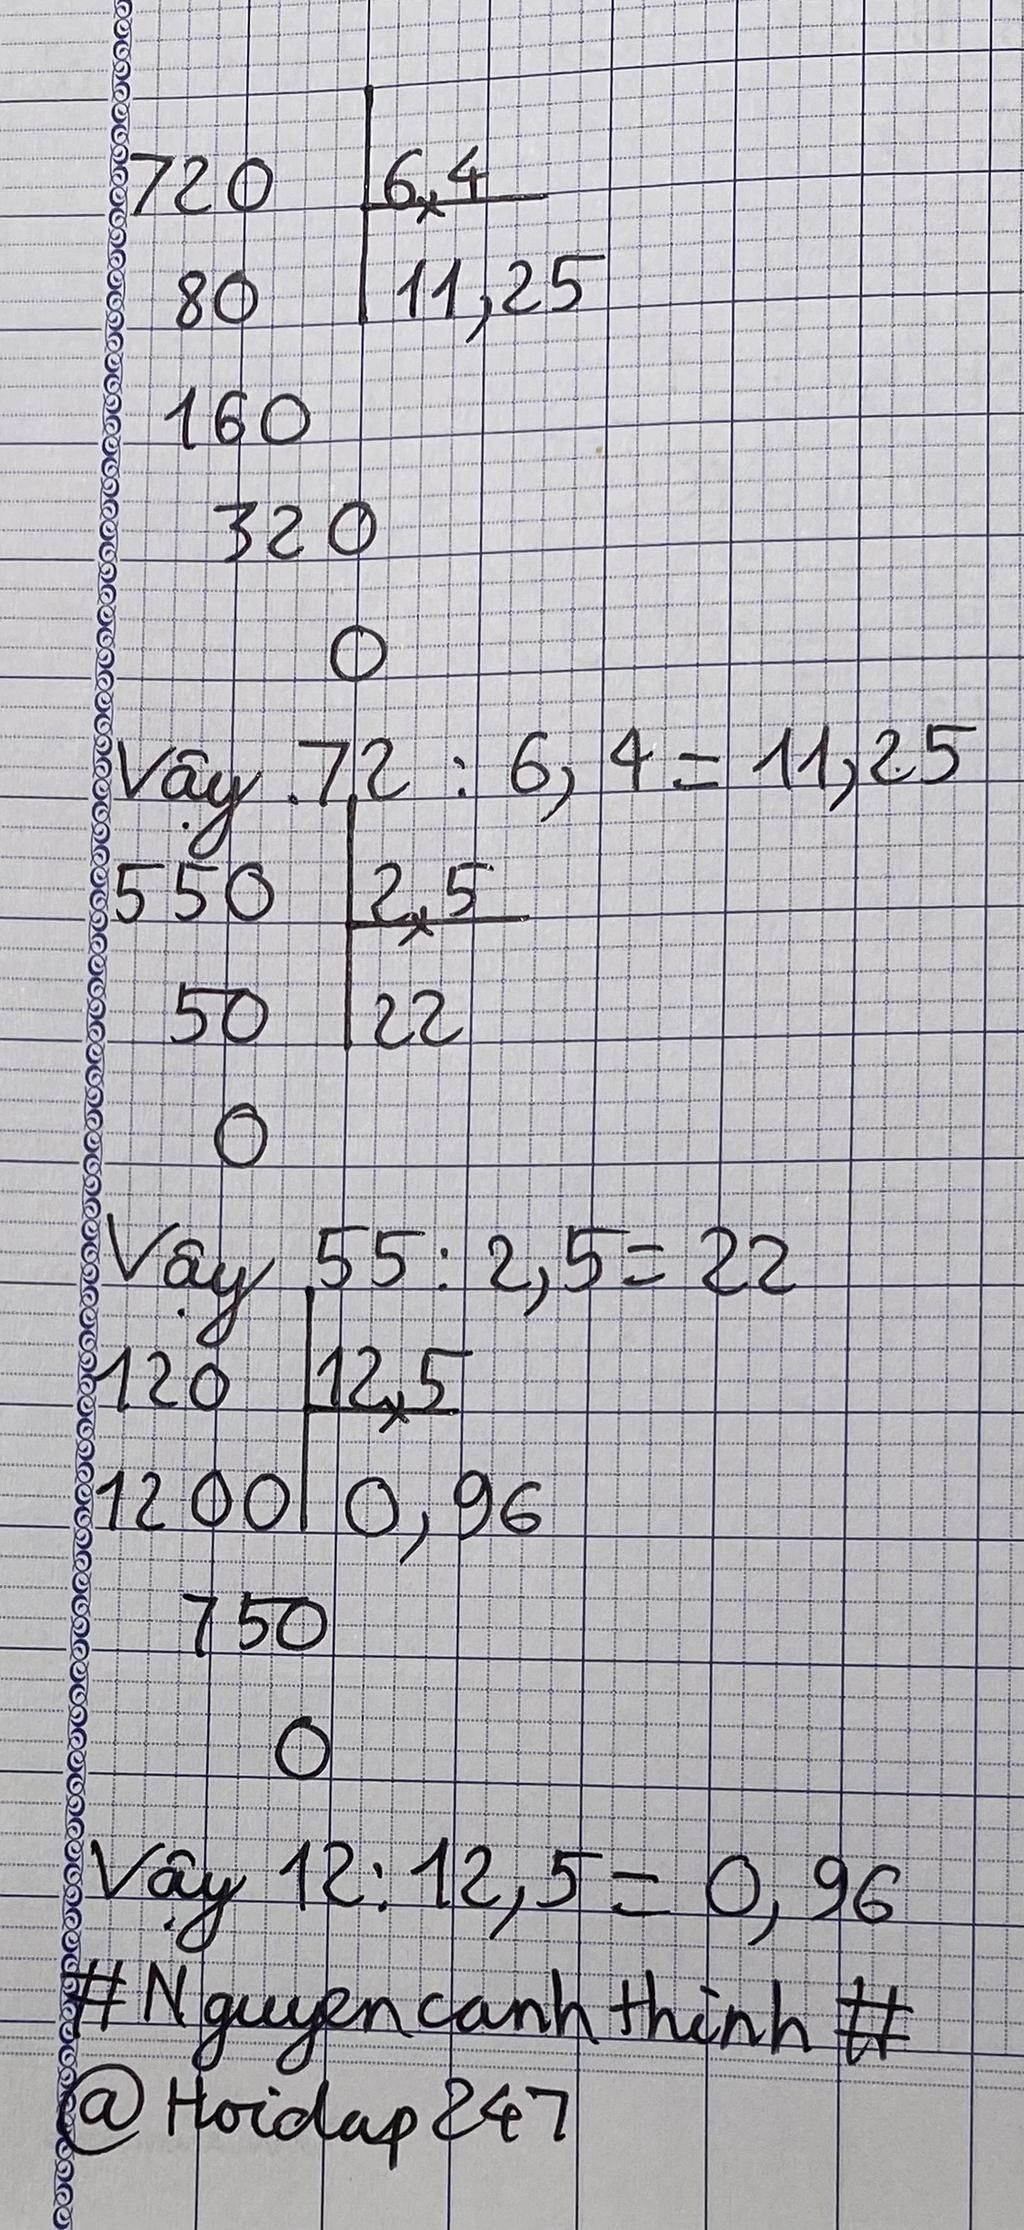 720 6,4
80 11,25
160
320
0
Vậy 72 : 6,4 = 11,25
550 2,5
50 22
0
Vậy 55 : 2,5 = 22
120 12,5
1200 0,96
750
0
Vậy 12 : 12,5 = 0,96
#Nguyencanhthinh#
@Hoidap247